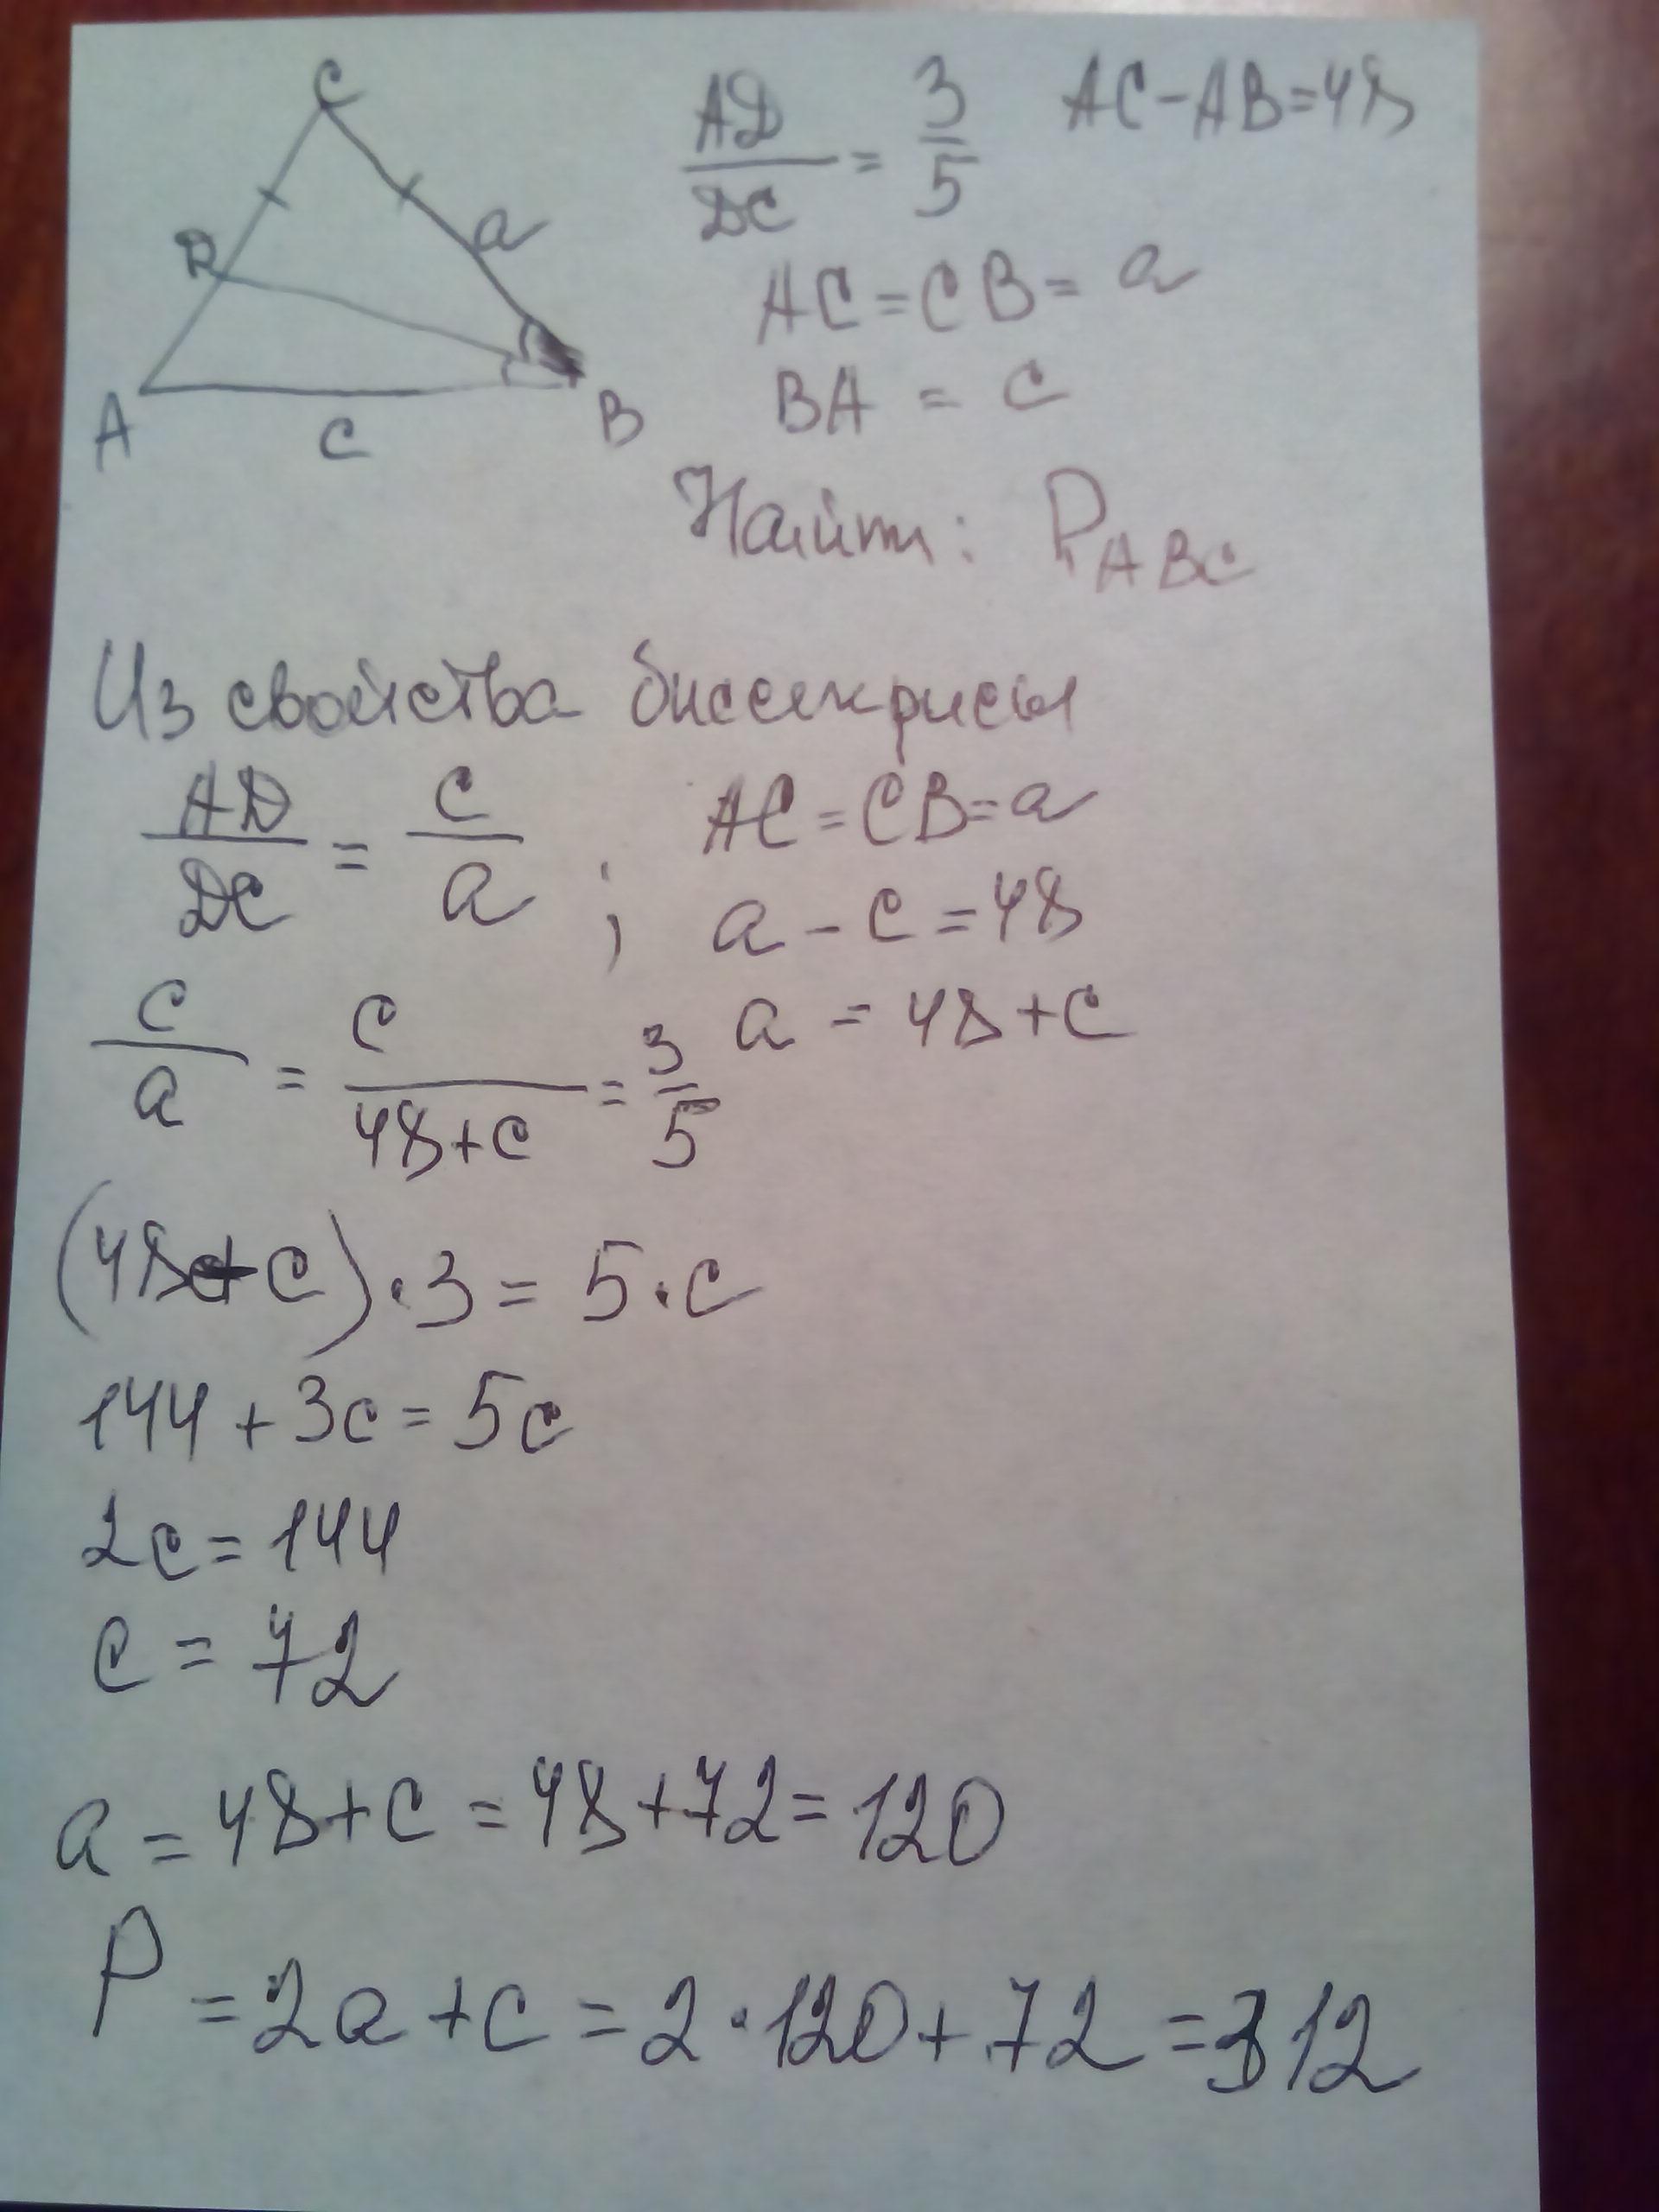 C
D
a
A
B
c
AD/DC = 3/5 AC-AB=48
AC=CB= a
BA = c
Найти: P_ABC
Из свойства биссектрисы
AD/DC = c/a ; AC=CB=a
a-c=48
a = 48+c
c/a = c/(48+c) = 3/5
(48+c)·3= 5·c
144+3c=5c
2c=144
c = 72
a=48+c=48+72=120
P=2a+c=2·120+72=312